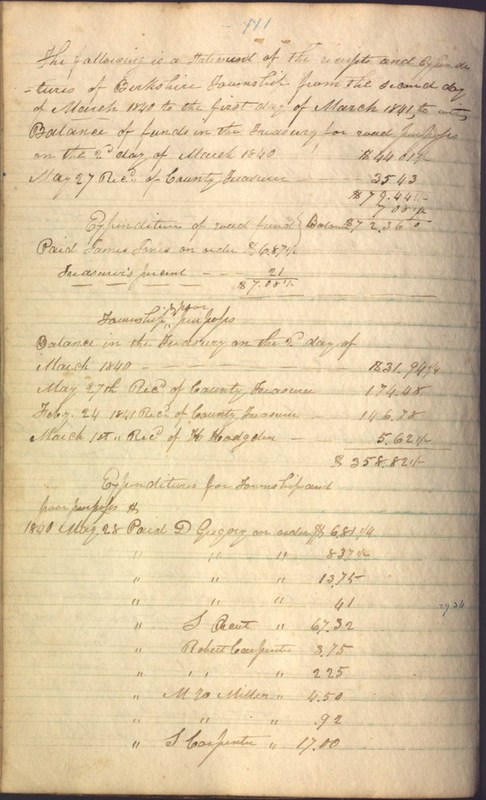 111
The following is a statement of the receipts and Expendi
-tures of Berkshire Township from the second day
of March 1840 to the first day of March 1841, to wit,
Balance of funds in the Treasury for road purposes
on the 2d day of March 1840 $44 01
May 27 Recd of County Treasurer 35 43
$79.44
7 08
Expenditure of road fund Balance $72.36
Paid James on order $6.87½
Treasurer's percent 21
$7.08½
Township & poor purposes
Balance in the Treasury on the 2d day of
March 1840 $31,94¼
May 27th Recd of County Treasurer 174.48
Feby. 24 1841 Recd of County Treasurer 146.78
March 1st " Recd of H Hodgden 5.62½
$358.82½
Expenditures for Township and
poor purposes
1840 May 28 Paid D Gregory on order $6,81¼
" " " 837½
" " " 13,75
" " " 41
2934
" S " 67.32
" Robert Carpenter 3.75
" " " 225
" M Miller " 4.50
" " " .92
" S Carpenter " 17.00